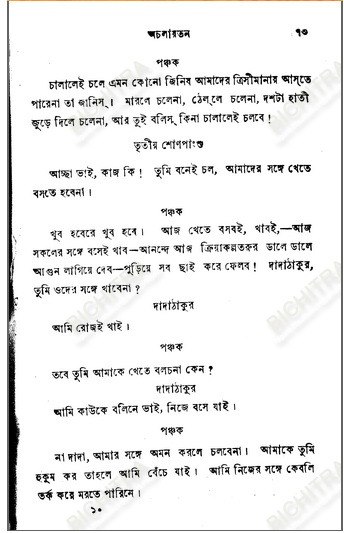 অচলায়তন ৭৩
পঞ্চক
চালালেই চলে এমন কোনো জিনিষ আমাদের ত্রিসীমানায় আস্‌তে
পারেনা তা জানিস্‌। মারলে চলেনা, ঠেল্‌লে চলেনা, দশটা হাতী
জুড়ে দিলে চলেনা, আর তুই বলিস্‌ কিনা চালালেই চলবে!
তৃতীয় শোণপাংশু
আচ্ছা ভাই, কাজ কি! তুমি বনেই চল, আমাদের সঙ্গে খেতে
বসতে হবেনা।
পঞ্চক
খুব হবেরে খুব হবে। আজ খেতে বসবই, খাবই,—আজ
সকলের সঙ্গে বসেই খাব—আনন্দে আজ ক্রিয়াকল্পতরুর ডালে ডালে
আগুন লাগিয়ে দেব—পুড়িয়ে সব ছাই করে ফেলব! দাদাঠাকুর,
তুমি ওদের সঙ্গে খাবেনা?
দাদাঠাকুর
আমি রোজই খাই।
পঞ্চক
তবে তুমি আমাকে খেতে বলচনা কেন?
দাদাঠাকুর
আমি কাউকে বলিনে ভাই, নিজে বসে যাই।
পঞ্চক
না দাদা, আমার সঙ্গে অমন করলে চলবেনা। আমাকে তুমি
হুকুম কর তাহলে আমি বেঁচে যাই। আমি নিজের সঙ্গে কেবলি
তর্ক করে মরতে পারিনে।
১০
BICHITRA